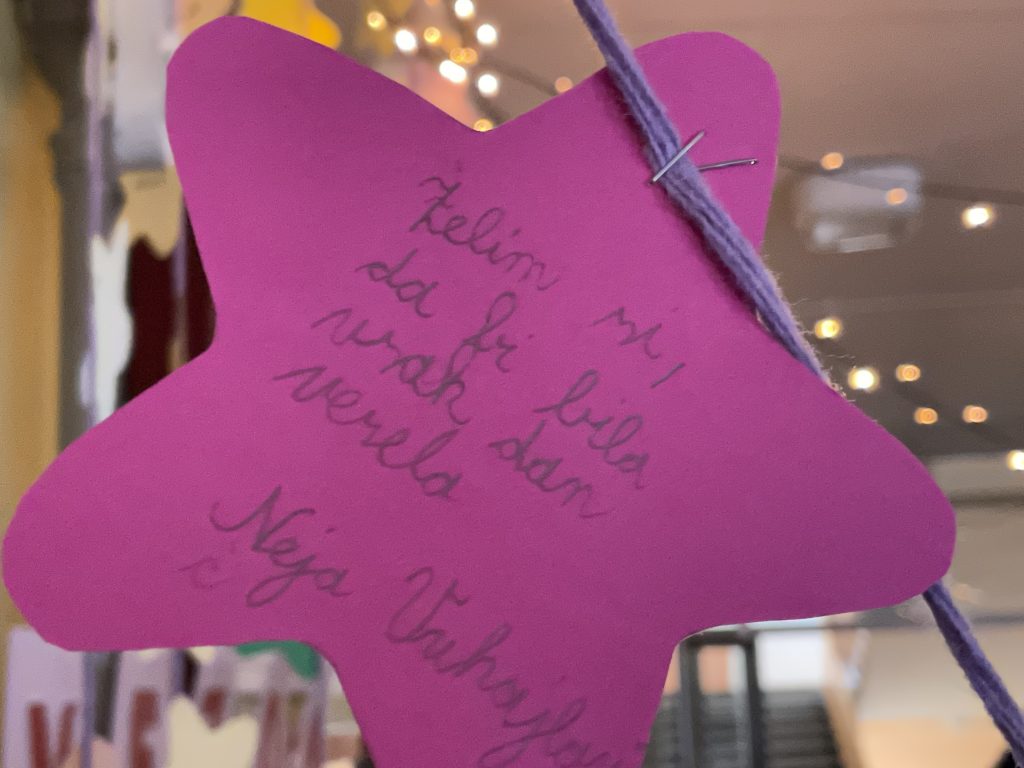 Želim si,
da bi bila
vsak dan
vesela
Neja Vuhajlov